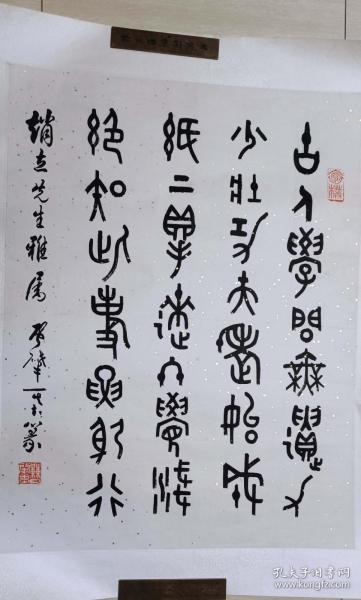 古人學問無遺力
少壯功夫老始成
紙上得來終覺淺
絕知此事要躬行
先生雅屬
篆
孔夫子旧书网